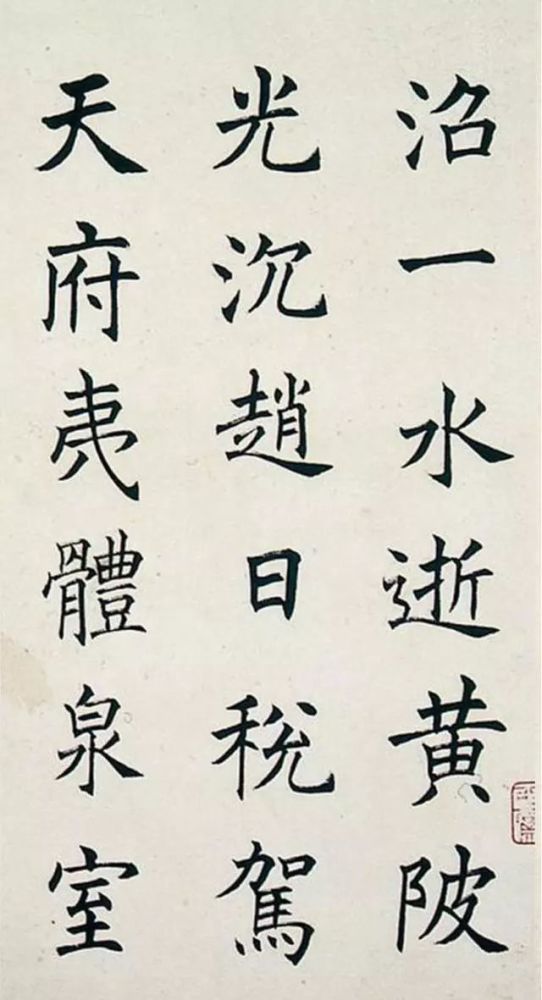 沿一水逝黄陂
光沉趙日税駕
天府夷體泉室